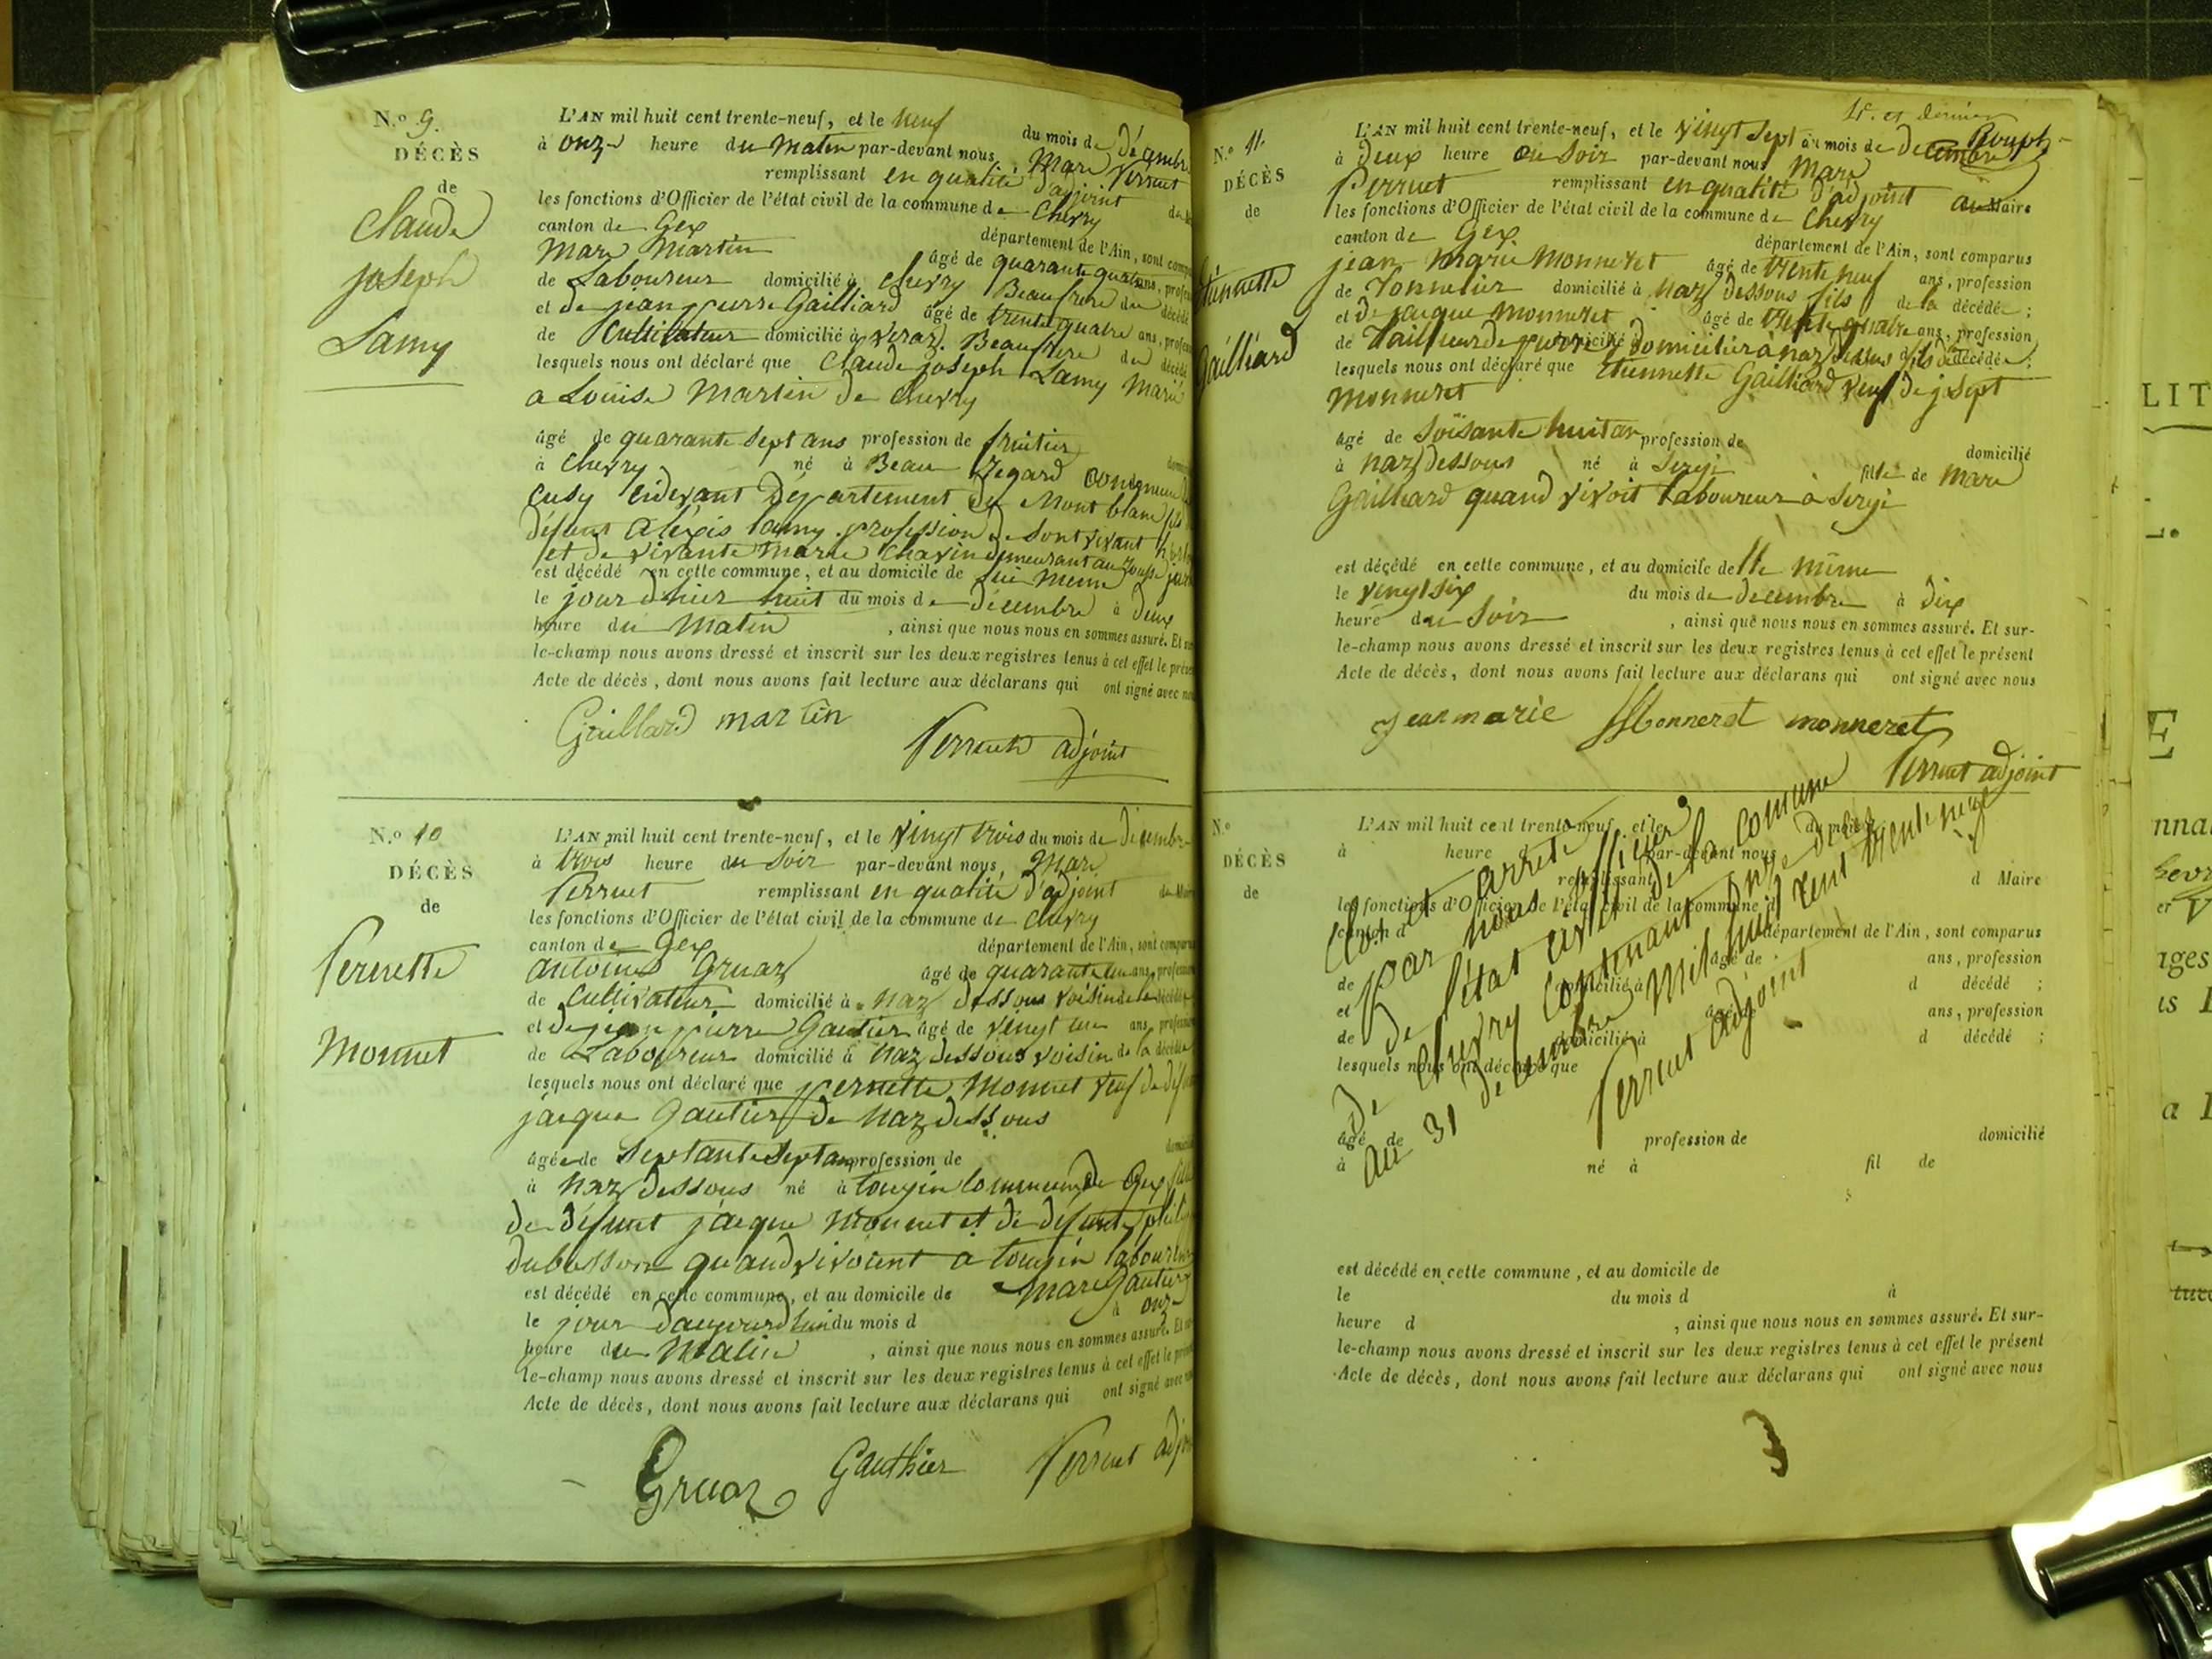 N.o 9.
DÉCÈS
de
Claude
joseph
Lamy
L'AN mil huit cent trente-neuf, et le neuf du mois de Décembre
à onze heure du Matin par-devant nous, Marc Perruet
remplissant en qualité d'adjoint
les fonctions d'Officier de l'état civil de la commune de Chevry
canton de Gex département de l'Ain, sont
Marc Martin âgé de quarante quatre ans,
de Laboureur domicilié à chevry Beaufrere du décédé
et de jean pierre Gailliard âgé de trente quatre ans,
de Cultivateur domicilié à veraz. Beaufrere du décédé
lesquels nous ont déclaré que Claude joseph Lamy Marié
a Louise Martin de Chevry
âgé de quarante sept ans profession de fruitier
à Chevry né à Beau Regard
Cusy cidevant Département du Mont blanc fils
défunt alexis lamy. profession de sont vivant
et de vivante marie Chavin demeurant au
est décédé en cette commune, et au domicile de lui meme
le jour dhier huit du mois de décembre à deux
heure du Matin, ainsi que nous nous en sommes assuré. Et
le-champ nous avons dressé et inscrit sur les deux registres tenus à cet effet le
Acte de décès, dont nous avons fait lecture aux déclarans qui ont signé avec
Gaillard martin
Perruet adjoint
N.o 10
DÉCÈS
de
Pernette
Monnet
L'AN mil huit cent trente-neuf, et le vingt trois du mois de décembre
à trois heure du Soir par-devant nous, Marc
Perruet remplissant en qualité d'adjoint
les fonctions d'Officier de l'état civil de la commune de chevry
canton de Gex département de l'Ain, sont
antoine Gruaz âgé de quarante un ans,
de Cultivateur domicilié à naz dessous voisin de la décédée
et de jean pierre Gautier âgé de vingt un ans,
de Laboureur domicilié à naz dessous voisin de la décédée
lesquels nous ont déclaré que pernette Monnet veuf de
jacque Gautier de naz dessous
âgée de Septante Sept an profession de
à naz dessous né à tougin Commune de Gex
de défunt jacque Monnet et de défunte
dubosson quand vivoient a tougin
est décédé en cette commune, et au domicile de marc Gautier
le jour daujourdhui du mois d à onze
heure du Matin, ainsi que nous nous en sommes assuré. Et
le-champ nous avons dressé et inscrit sur les deux registres tenus à cet effet le
Acte de décès, dont nous avons fait lecture aux déclarans qui ont signé avec
Gruaz Gauthier Perruet
et dernier
N.o 11.
DÉCÈS
de
Etiennette
Gailliard
L'AN mil huit cent trente-neuf, et le vingt Sept du mois de Decembre
à Deux heure du Soir par-devant nous Marc
Perruet remplissant en qualité d'adjoint au Maire
les fonctions d'Officier de l'état civil de la commune de Chevry
canton de Gex département de l'Ain, sont comparus
jean marie Monneret âgé de trente neuf ans, profession
de Tonnelier domicilié à naz dessous fils de la décédée;
et de jacque Monneret âgé de trente quatre ans, profession
de Tailleur de pierre domicilié à naz dessous fils de la décédée;
lesquels nous ont déclaré que Etiennette Gailliard veuf de josept
Monneret
âgé de Soisante huit an profession de domicilié
à naz dessous né à Sergi fille de Marc
Gailliard quand vivoit Laboureur à Sergi
est décédé en cette commune, et au domicile delle même
le vingt six du mois de decembre à dix
heure du Soir, ainsi que nous nous en sommes assuré. Et sur-
le-champ nous avons dressé et inscrit sur les deux registres tenus à cet effet le présent
Acte de décès, dont nous avons fait lecture aux déclarans qui ont signé avec nous
jean marie Monneret monneret
Perruet adjoint
N.o
DÉCÈS
de
L'AN mil huit cent trente-neuf, et le du mois d
à heure d par-devant nous
remplissant d Maire
les fonctions d'Officier de l'état civil de la commune d
canton d département de l'Ain, sont comparus
âgé de ans, profession
de domicilié à d décédé;
et âgé de ans, profession
de domicilié à d décédé;
lesquels nous ont déclaré que
Clos et arreté
par nous officier
de l'état civil de la Comune
de Chevry Contenant onze décès
au 31 decembre Mil huit cent trente neuf
Perruet adjoint
âgé de profession de domicilié
à né à fil de
est décédé en cette commune, et au domicile de
le du mois d à
heure d, ainsi que nous nous en sommes assuré. Et sur-
le-champ nous avons dressé et inscrit sur les deux registres tenus à cet effet le présent
Acte de décès, dont nous avons fait lecture aux déclarans qui ont signé avec nous